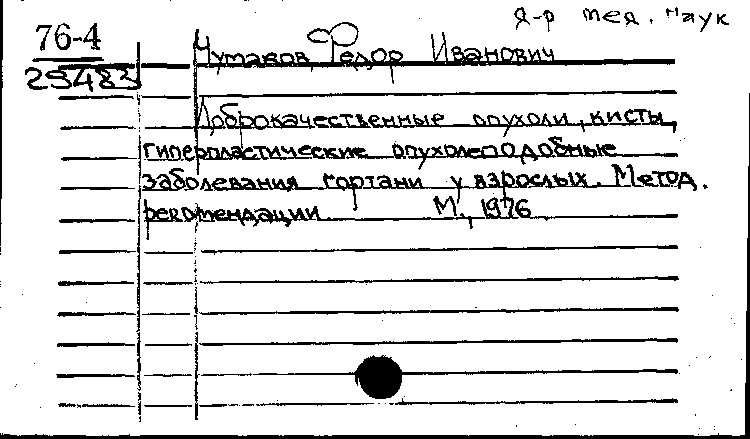 д-р мед. наук
76-4
25483
Чумаков, Федор Иванович
Доброкачественные опухоли, кисты,
гиперпластические опухолеподобные
заболевания гортани у взрослых. Метод.
рекомендации. М., 1976